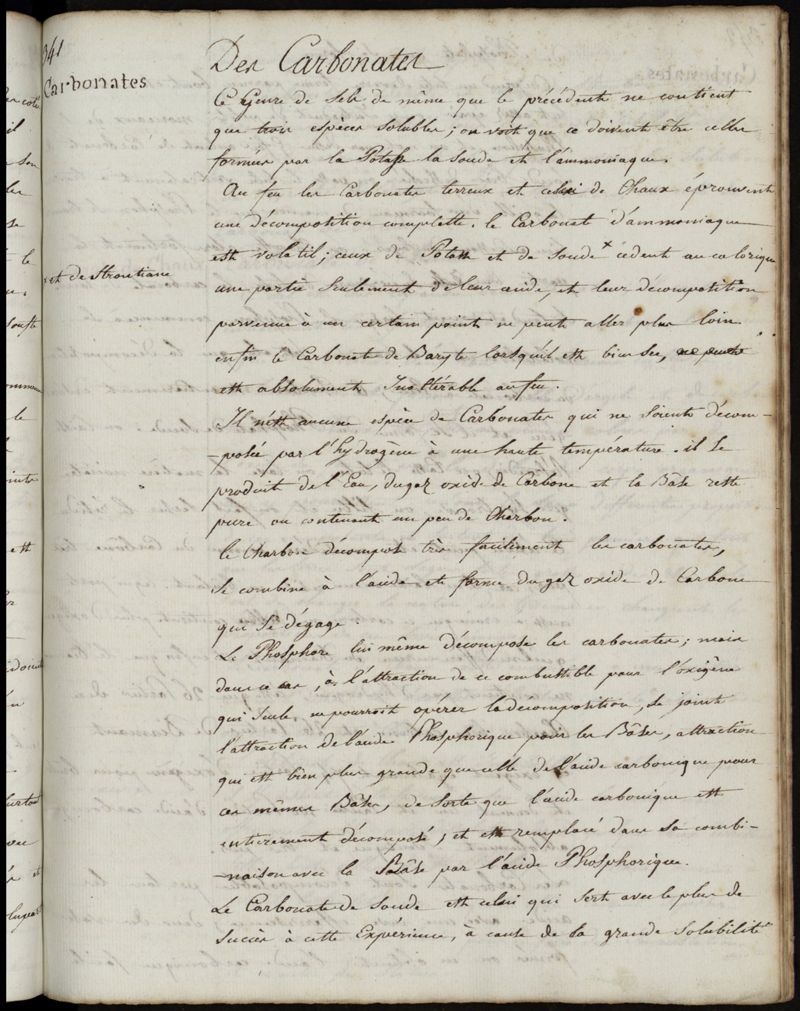 341
Carbonates
Des Carbonates
Ce Genre de Sels de même que le précédent ne contient
que trois espèces solubles ; on voit que ce doivent être celles
formées par la Potasse la Soude et l'ammoniaque.
Au feu les Carbonates terreux et celui de Chaux éprouvent
une décomposition complette. le Carbonate d'ammoniaque
est volatil ; ceux de Potasse et de Soude x cèdent au calorique
x et de Strontiane
une partie Seulement de leur acide, et leur décomposition
parvenue à un certain point ne peut aller plus loin
enfin le Carbonate de Baryte lorsqu'il est bien sec,
est absolument Inaltérable au feu.
Il n'est aucune espèce de Carbonates qui ne Soient décom-
-posées par l'hydrogène à une haute température. il Se
produit de l'Eau, du gaz oxide de Carbone et la Bâse reste
pure ou contenant un peu de Charbon.
le Charbon décompose très facilement les carbonates,
Se combine à l'acide et forme du gaz oxide de Carbone
qui Se dégage.
Le Phosphore lui même décompose les carbonates ; mais
dans ce cas, à l'attraction de ce combustible pour l'oxigène
qui Seule ne pourroit opérer la décomposition, Se joint
l'attraction de l'acide Phosphorique pour les Bâses, attraction
qui est bien plus grande que celle de l'acide carbonique pour
ces mêmes Bâses, de Sorte que l'acide carbonique est
entierement décomposé, et est remplacé dans sa combi-
-naison avec la Bâse par l'acide Phosphorique.
Le Carbonate de Soude est celui qui Sert avec le plus de
Succès à cette Expérience, à cause de la grande Solubilité